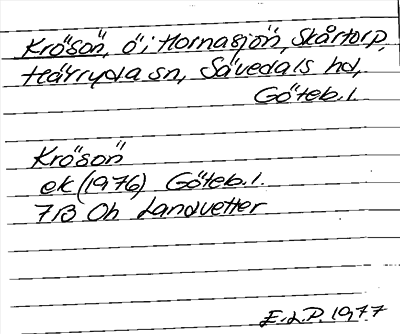 Krösön, ö i Hornasjön, Skårtorp,
Härryda sn, Sävedals hd,
Göteb. l.
Krösön
ek (1976) Göteb. l.
7B Oh Landvetter
E.L.P. 1977